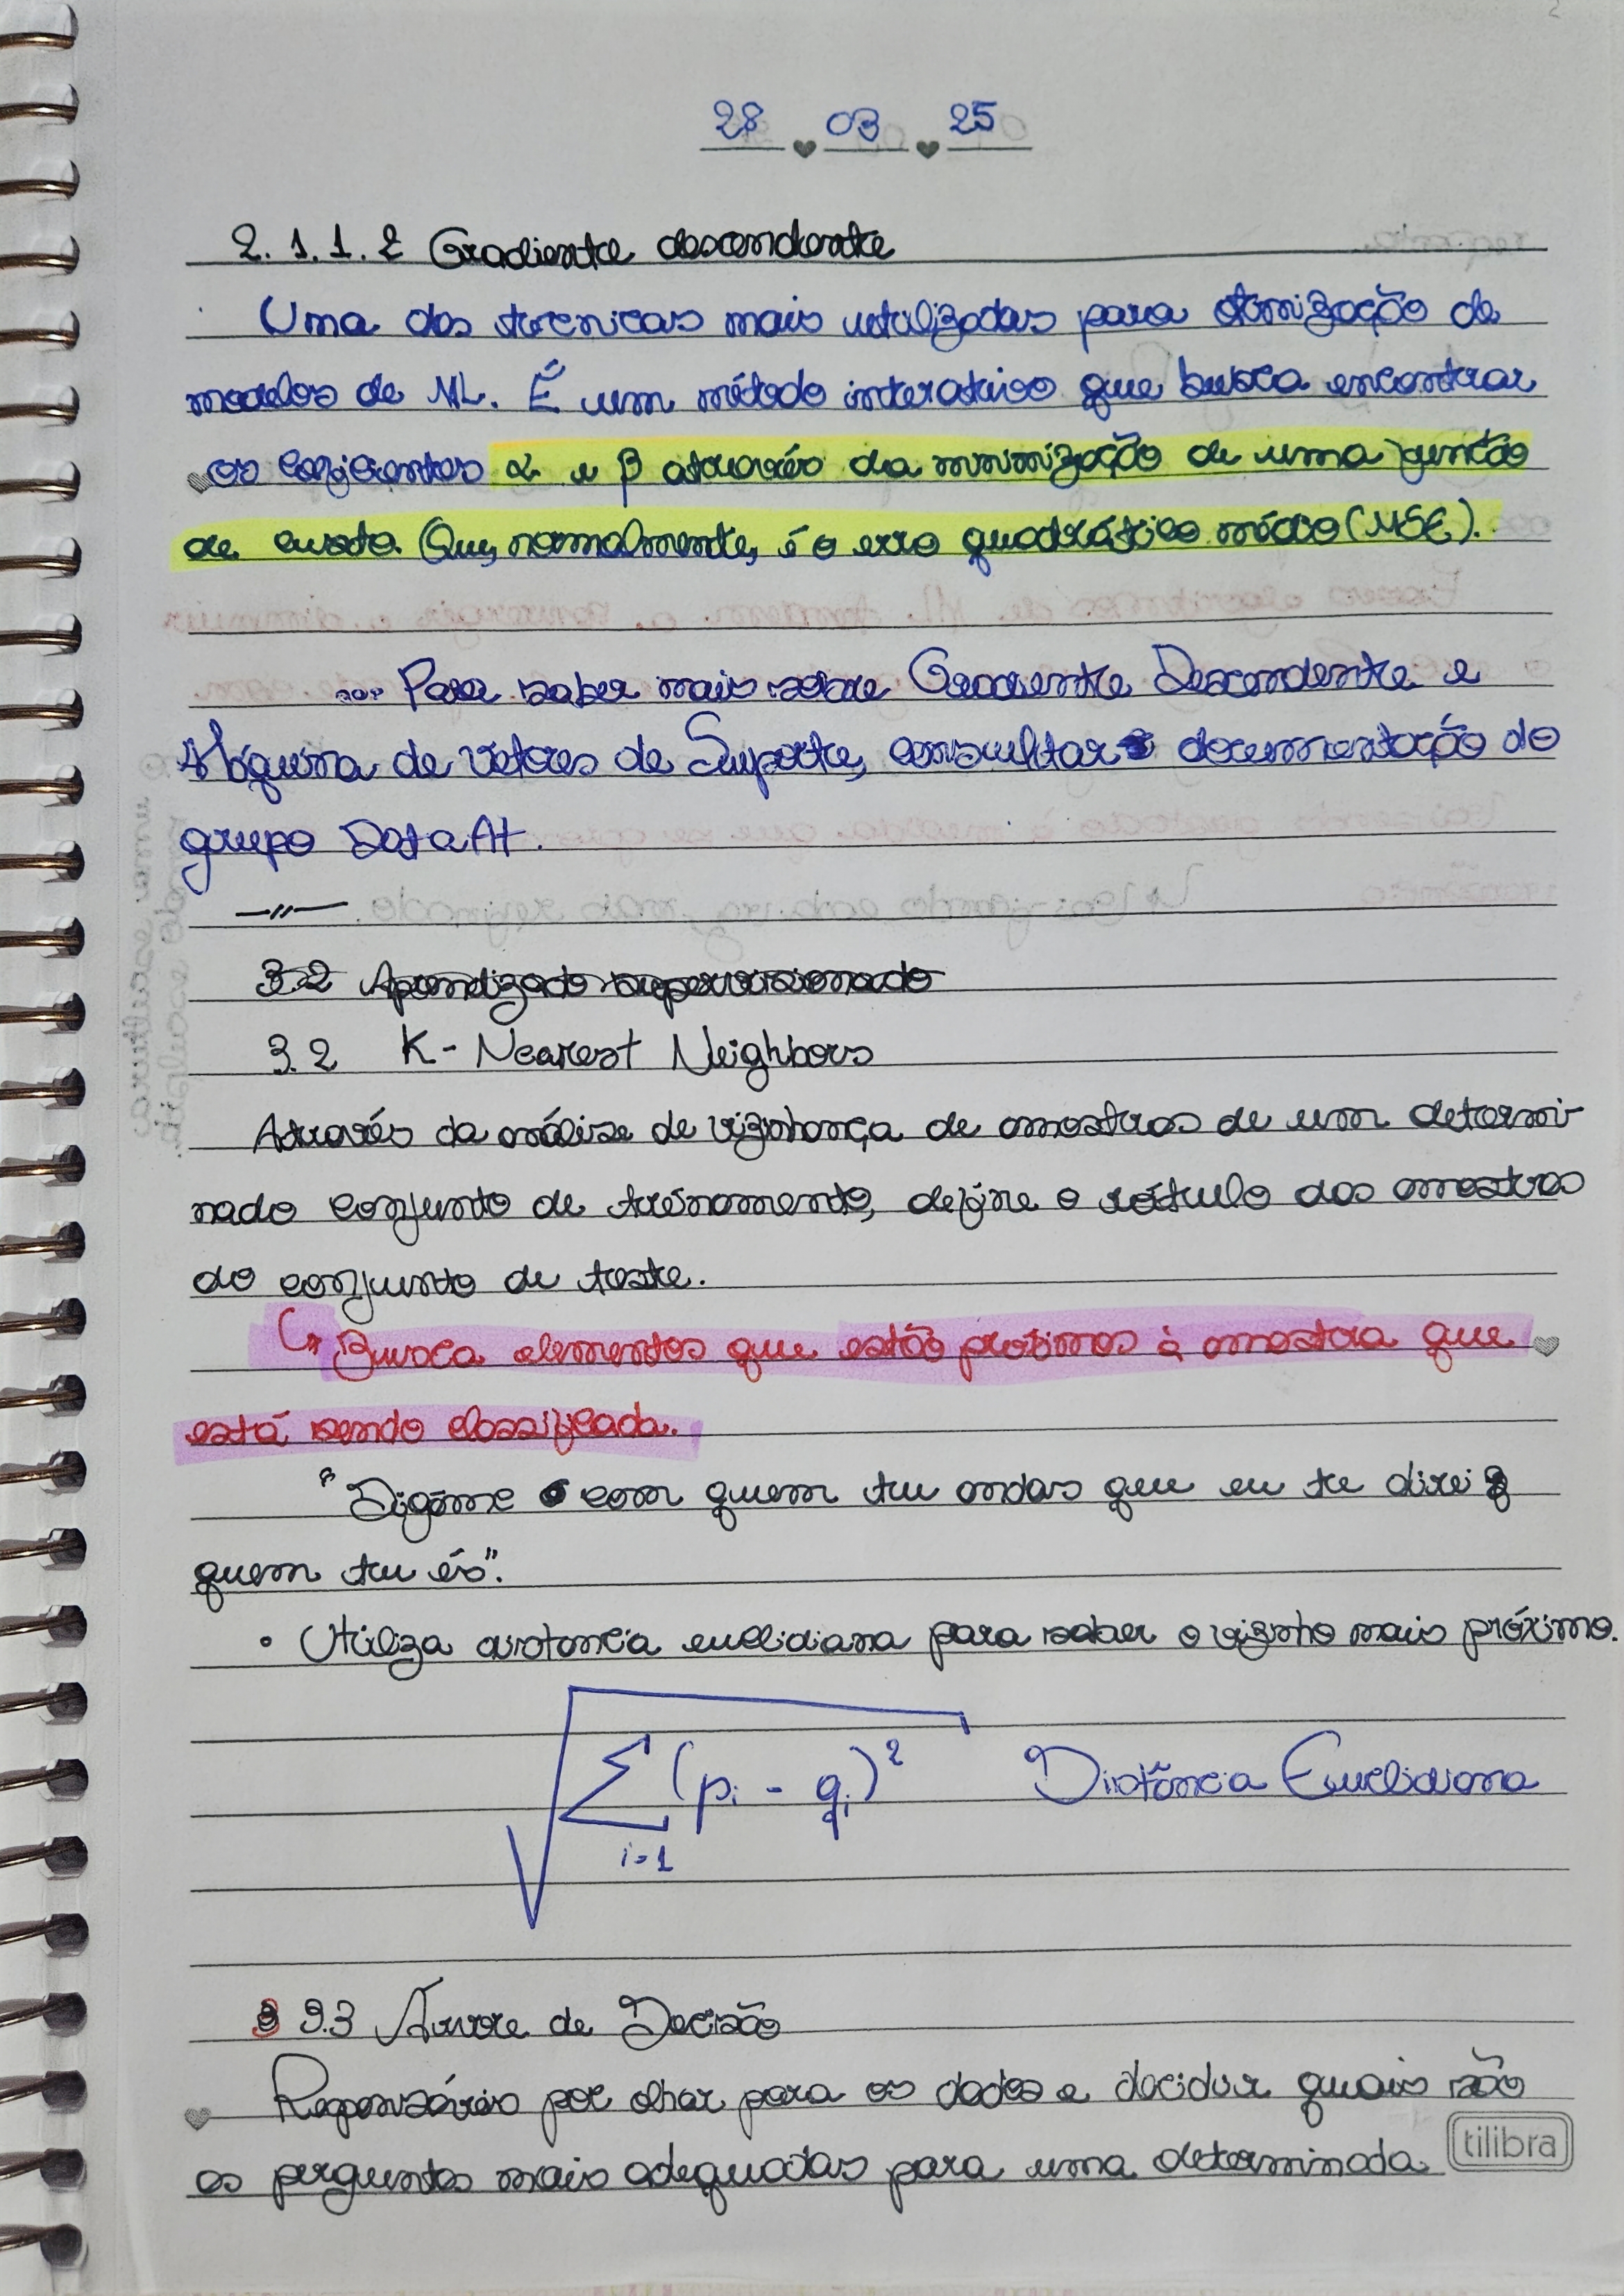 28 03 25
2.1.1.2 Gradiente descendente
Uma das técnicas mais utilizadas para otimização de
modelos de ML. É um método interativo que busca encontrar
os coeficientes α e β através da minimização de uma função
de custo. Que, normalmente, é o erro quadrático médio (MSE).
... Para saber mais sobre Gradiente Descendente e
Máquina de Vetores de Suporte, consultar documentação do
grupo Data At.
—//—
3.2 Aprendizado supervisionado
3.2 K-Nearest Neighbors
Através da análise de vizinhança de amostras de um determi-
nado conjunto de treinamento, define o rótulo das amostras
do conjunto de teste.
↳ Busca elementos que estão próximos à amostra que
está sendo classificada.
"Digame com quem tu andas que eu te direi
quem tu és".
• Utiliza distancia euclidiana para saber o vizinho mais próximo.
√ Σ (pi - qi)² Distância Euclidiana
i=1
3.3 Árvore de Decisão
Responsáveis por olhar para os dados e decidir quais são
as perguntas mais adequadas para uma determinada
tilibra